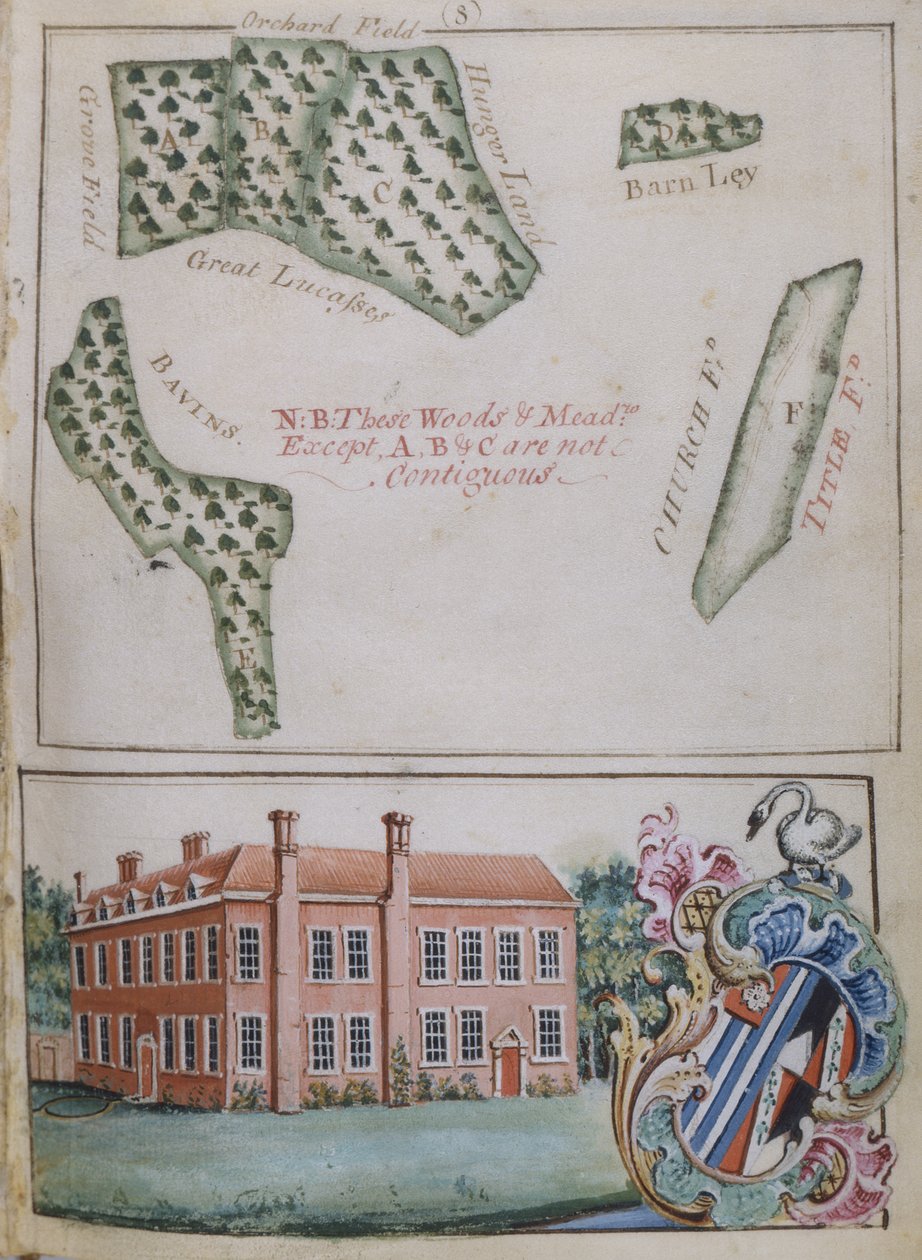 8
Orchard Field
Grove Field
A
B
C
Hunger Land
D
Barn Ley
Great Lucaſses
BAVINS.
N:B: These Woods & Mead.ws
Except, A, B & C are not
Contiguous
CHURCH F.D
F
TITLE, F.D
E